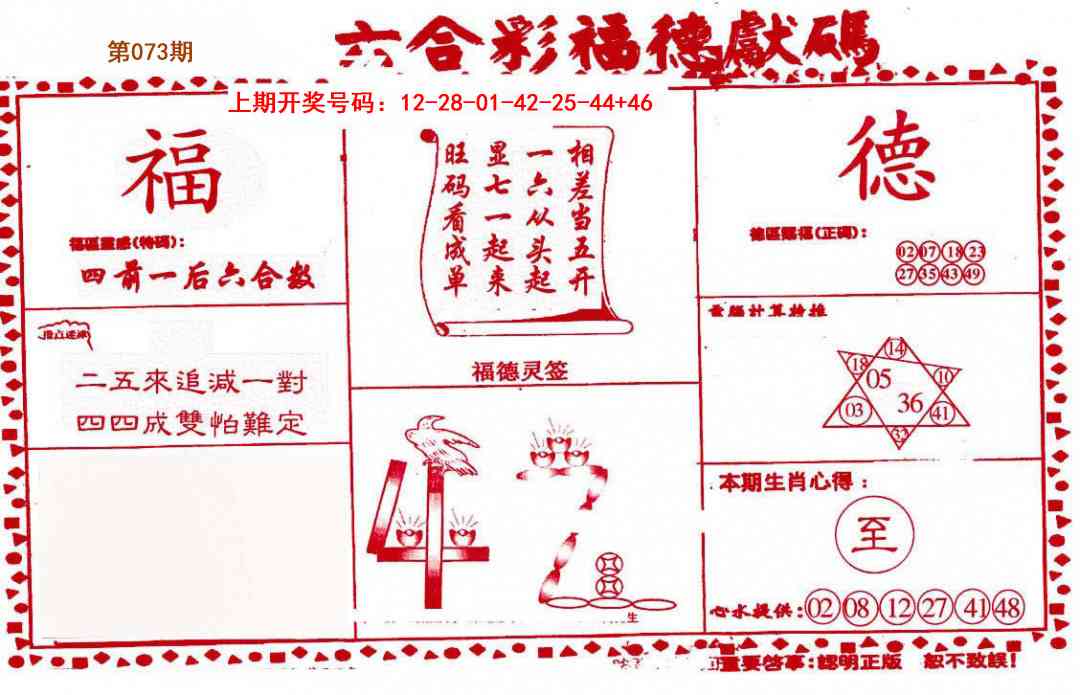 第073期
六合彩福德獻碼
上期开奖号码：12-28-01-42-25-44+46
福
福區靈感(特碼)：
四前一后六合数
二五來追減一對
四四成雙怕難定
相差当五开
一六从头起
显七一起来
旺码看成单
福德灵签
42
生
德
德區賜福(正碼)：
02 07 18 23
27 35 43 49
14
18 05 10
03 36 41
33
本期生肖心得：
至
心水提供：02 08 12 27 41 48
重要啓事：認明正版 恕不致誤！